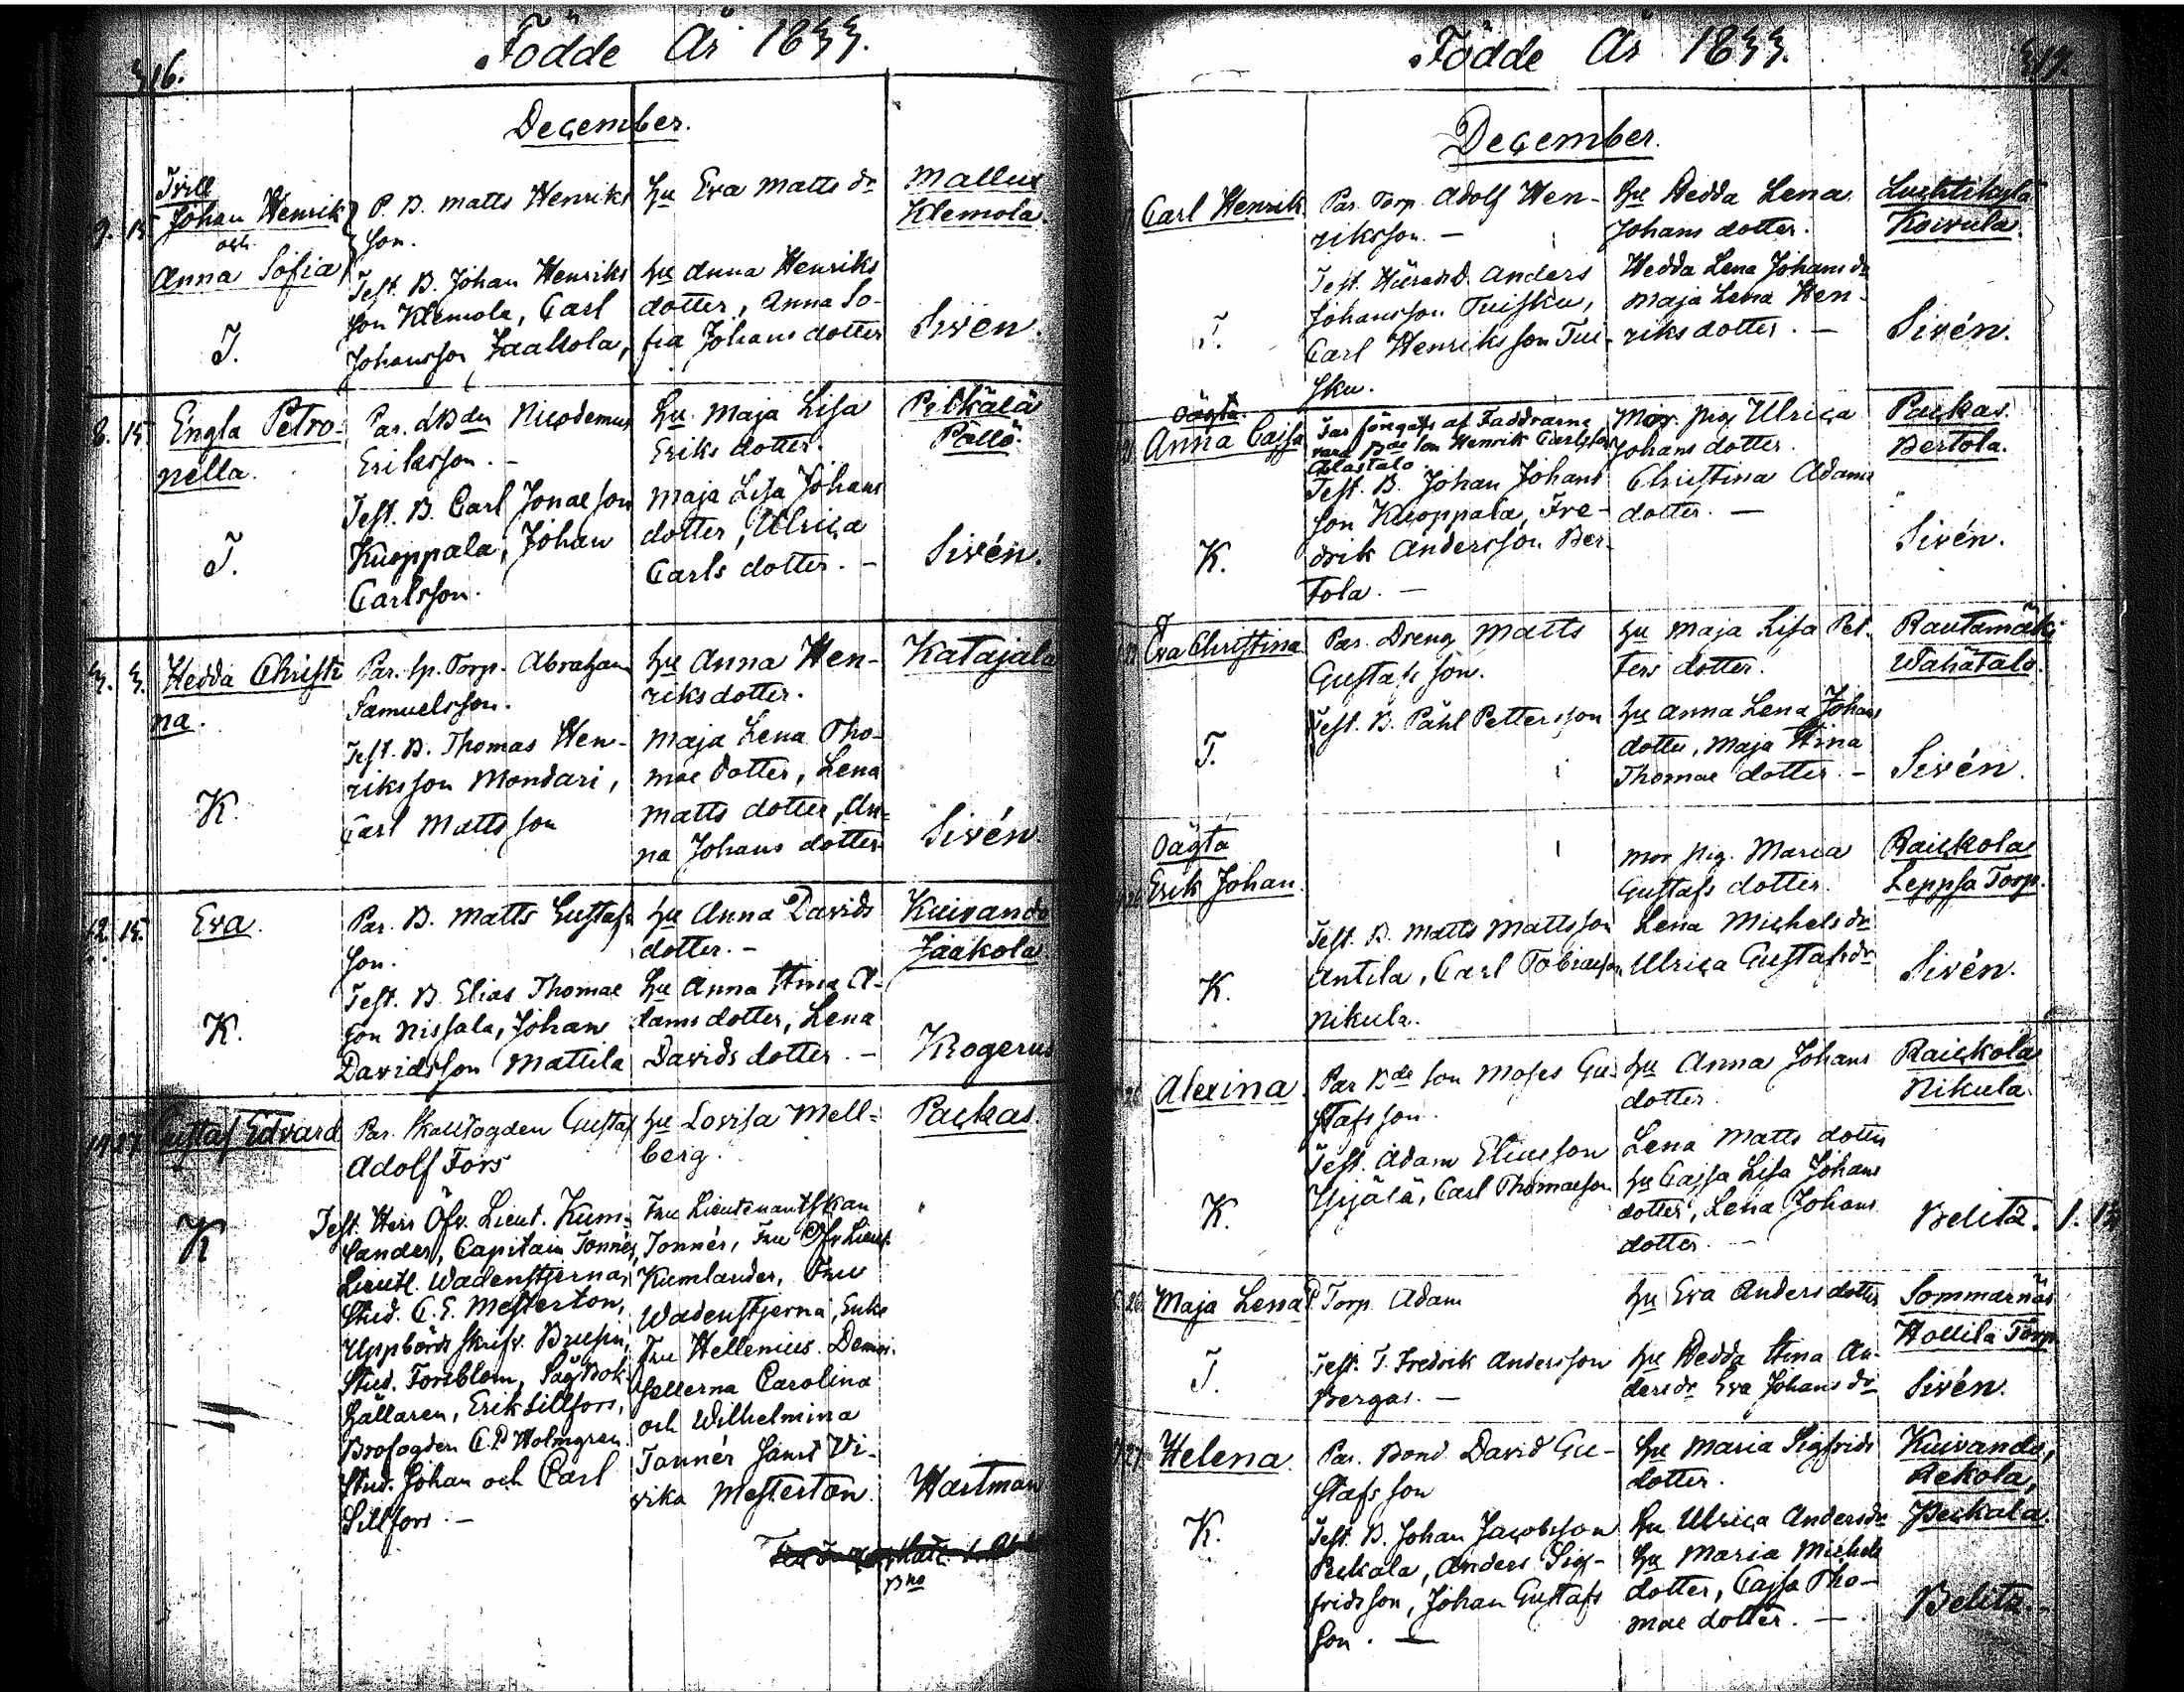 416.
Födde År 1844.
December.
Tvill
Johan Henrik
och
Anna Sofia
T.
P. B. Matts Henriks
son.
Test. B. Johan Henriks
son Klemola, Carl
Johansson Jaakola,
hu Eva Matts dr
hu Anna Henriks
dotter, Anna So-
fia Johans dotter
Mallus
Klemola
Sivén.
8. 15. Engla Petro-
nella.
T.
Par. LBden Nicodemus
Eriksson. -
Test. B. Carl Jonaeson
Kuoppala, Johan
Carlsson.
hu. Maja Lisa
Eriks dotter.
Maja Lisa Johans
dotter, Ulrica
Carls dotter. -
Pitkälä
Pällö.
Sivén.
4. 4. Hedda Christi
na.
K.
Par. Sp. Torp. Abraham
Samuelsson.
Test. B. Thomas Hen-
riksson Mondari,
Carl Matts son
hu Anna Hen-
riks dotter.
Maja Lena Tho-
mae dotter, Lena
Matts dotter, An-
na Johans dotter
Katajala
Sivén.
12. 15. Eva.
K.
Par. B. Matts Gustafs
son.
Test. B. Elias Thomae
son Nissala, Johan
Davidsson Mattila
hu Anna Davids
dotter. -
hu Anna Stina A-
dams dotter, Lena
Davids dotter. -
Kuivando
Jaakola
Krogerus
Gustaf Edvard
K
Par. Gustaf
Adolf Fors
Test. Herr Öfv. Lieut. Kum-
lander, Capitain Tonnér,
Lieut. Wadenstjerna,
Stud. C. E. Mesterton,
Uppbörds skrifv. Brusin,
Stud. Forsblom, Såg Bok-
hållaren, Erik Sillfors,
Brofogden C. P. Holmgren
Stud. Johan och Carl
Sillfors. -
hu Lovisa Mell-
berg.
Fru Lieutenantskan
Tonnér, Fru Öfv Lieut.
Kumlander, Fru
Wadenstjerna, Enke
Fru Hellenius. Demoi-
sellerna Carolina
och Wilhelmina
Tonnér samt Vi-
vika Mesterton.
Paukas.
Hartman
Födde År 1844.
417.
December.
Carl Henrik
T.
Par. Torp. Adolf Hen-
riksson. -
Test. Anders
Johansson Tuisku,
Carl Henriks son Tui-
sku.
hu Hedda Lena
Johans dotter.
Hedda Lena Johans dr
Maja Lena Hen-
riks dotter. -
Koivula.
Sivén.
Oägta
Anna Cajsa
K.
Far föregafs af Faddrarne
vara Bde son Henrik Carlsson
Alastalo.
Test. B. Johan Johans
son Kuoppala, Fre-
drik Andersson Ber-
tola. -
Mor. pig. Ulrica
Johans dotter.
Christina Adams
dotter. -
Paukas.
Bertola.
Sivén.
Eva Christina
T.
Par. Dreng Matts
Gustafs son.
Test. B. Påhl Pettersson
hu Maja Lisa Pet-
ters dotter.
hu Anna Lena Johans
dotter, Maja Stina
Thomae dotter. -
Rautamäki
Wähätalo.
Sivén.
Oägta
Erik Johan.
K.
Test. B. Matts Mattsson
Antila, Carl Tobiaeson
Nikula.
Mor pig. Maria
Gustafs dotter.
Lena Michels dr
Ulrica Gustafs dr
Raickola
Leppsa Torp.
Sivén.
Alexina.
K.
Par Bde son Moses Gu-
stafs son.
Test. Adam Eliaeson
Ypjälä, Carl Thomaeson
hu Anna Johans
dotter.
Lena Matts dotter
hu Cajsa Lisa Johans
dotter, Lena Johans
dotter. -
Raickola
Nikula
Belitz.
26. Maja Lena
T.
P. Torp. Adam
Test. T. Fredrik Andersson
Bergas. -
hu Eva Anders dotter
hu Hedda Stina An-
ders dr Eva Johans dr
Sommarnäs
Hollila Torp
Sivén.
27. Helena.
K.
Par. Bond David Gu-
stafs son
Test. B. Johan Jacobsson
Peckala, Anders Sig-
frids son, Johan Gustafs
son. -
hu Maria Sigfrids
dotter.
hu Ulrica Anders dr
hu Maria Michels
dotter, Cajsa Tho-
mae dotter. -
Kuivando,
Rekola,
Peckala.
Belitz -